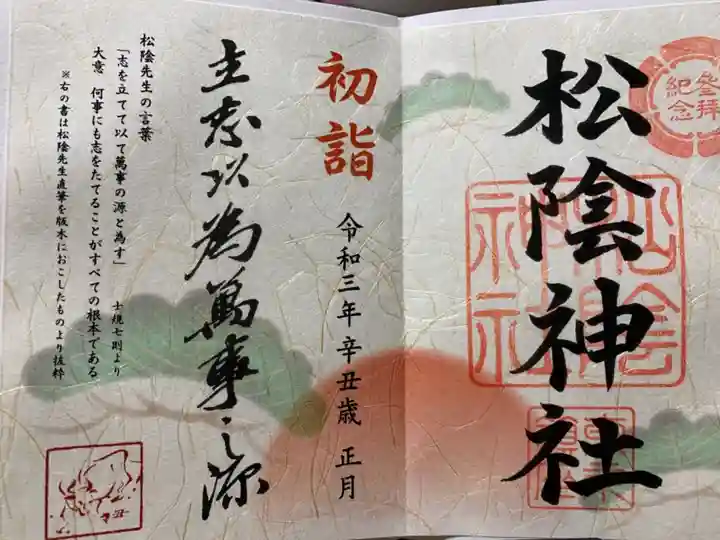 参拝
紀念
松陰神社
松陰
神社
初詣
令和三年 辛丑歳 正月
立志以為萬事之源
松陰先生の言葉
「志を立てて以て萬事の源と為す」
士規七則より
大意 何事にも志をたてることがすべての根本である
※右の書は松陰先生直筆を版木におこしたものより抜粋
丑